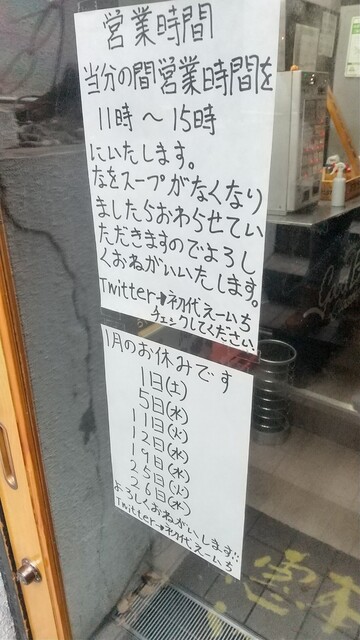 営業時間
当分の間営業時間を
11時～15時
にいたします。
なをスープがなくなり
ましたらおわらせてい
ただきますのでよろし
くおねがいいたします。
Twitter→初代えーいち
チェックしてください
1月のお休みです
1日(土)
5日(水)
11日(火)
12日(水)
19日(水)
25日(火)
26日(水)
よろしくおねがいします
Twitter→初代えーいち